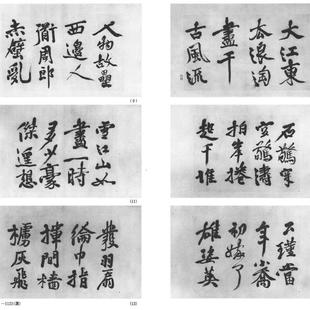 大江東
去浪淘
盡千
古風流
人物故壘
西邊人
道周郎
赤壁亂
(9)
石
空驚濤
拍岸捲
起千堆
雪江山如
畫一時
多少豪
傑遙想
(11)
公瑾當
年小喬
初嫁了
雄姿英
發羽扇
綸巾指
揮間檣
櫓灰飛
(13)